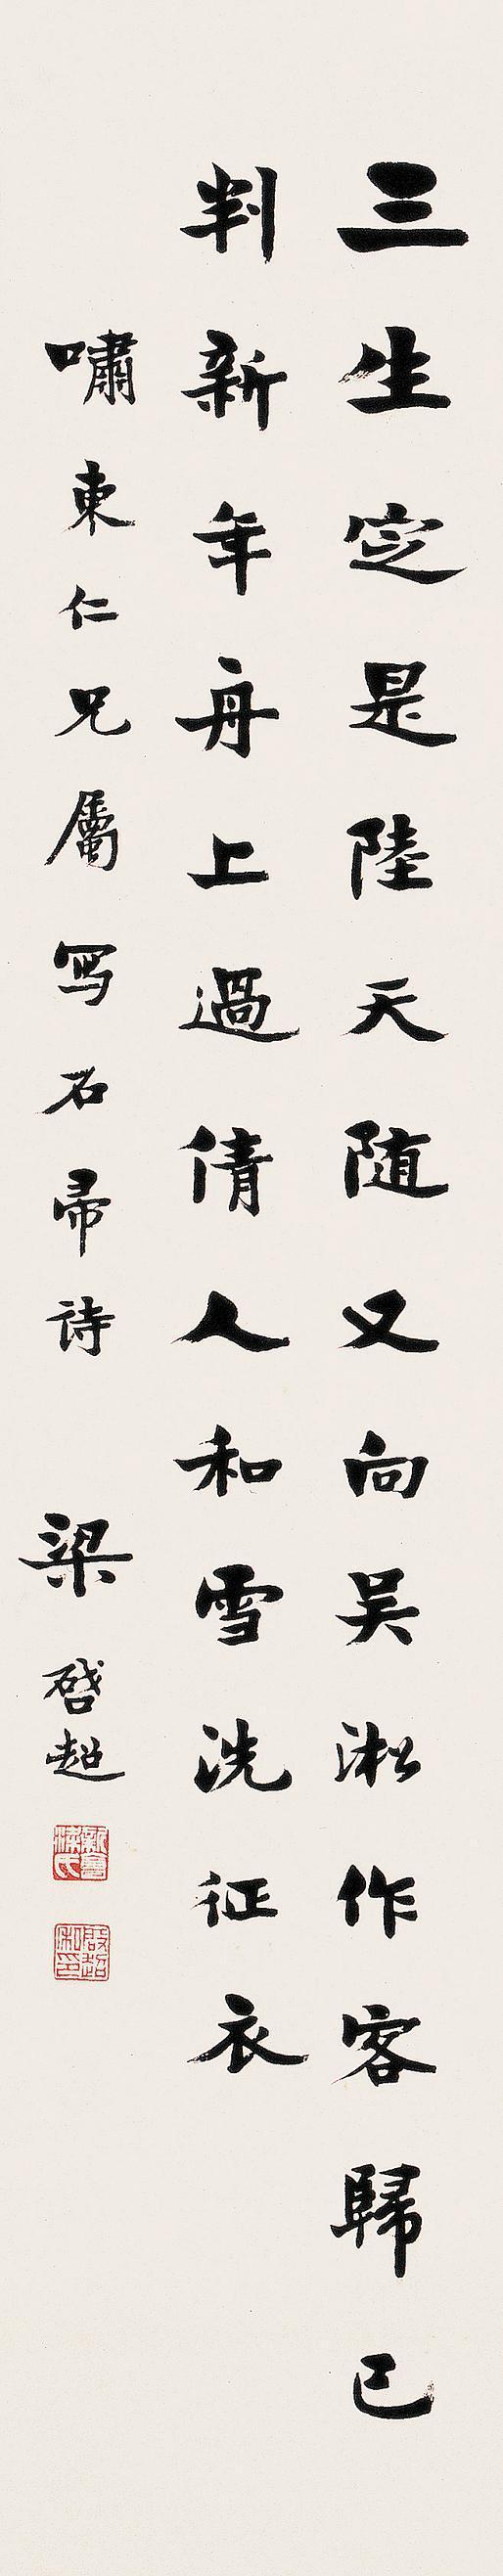 三生定是陸天随又向吴淞作客歸已
判新年舟上過倩人和雪洗征衣
嘯東仁兄屬写石帚詩 梁啓超
新會梁氏
啟超私印